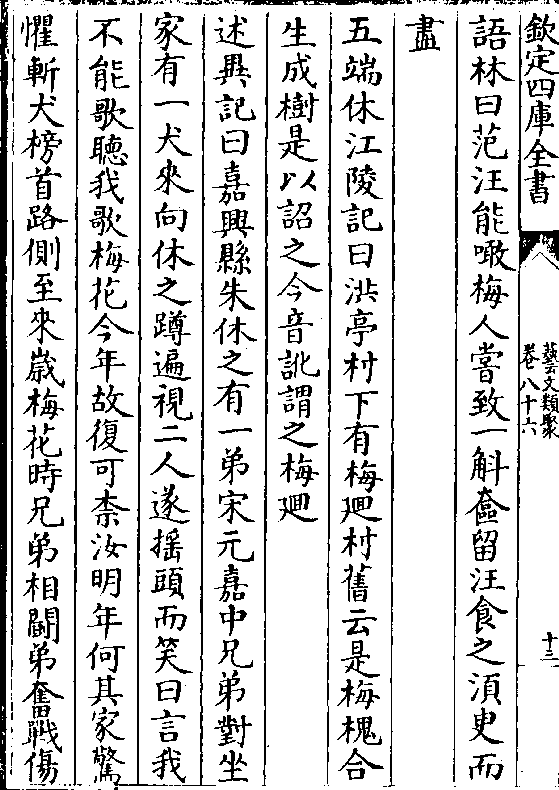 欽定四庫全書
藝文類聚
卷八十六
十三
語林曰范汪能噉梅人嘗致一斛奩留汪食之湏㬰而
盡
五端休江陵記曰洪亭村下有梅廻村舊云是梅槐合
生成樹是以詔之今音訛謂之梅廻
述異記曰嘉興縣朱休之有一弟宋元嘉中兄弟對坐
家有一犬來向休之蹲遍視二人遂摇頭而笑曰言我
不能歌聽我歌梅花今年故復可柰汝明年何其家驚
懼斬犬榜首路側至來歲梅花時兄弟相鬭弟奮戰傷